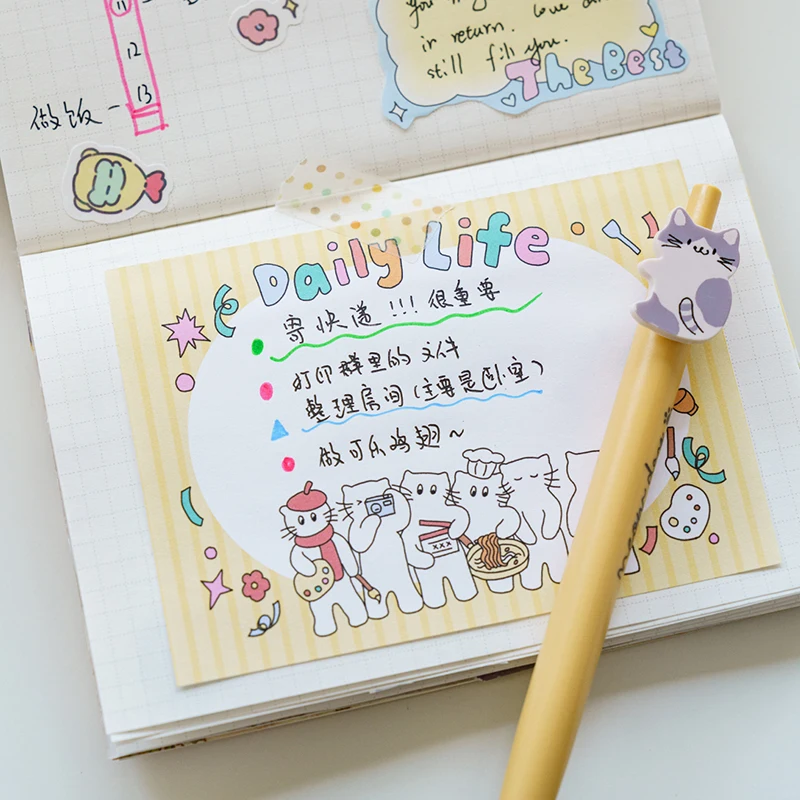 11
12
做饭 - 13
you
in return. love
still fill you.
The Best
Daily Life
寄快递!!! 很重要
打印群里的文件
整理房间(主要是卧室)
做可乐鸡翅~
xxx